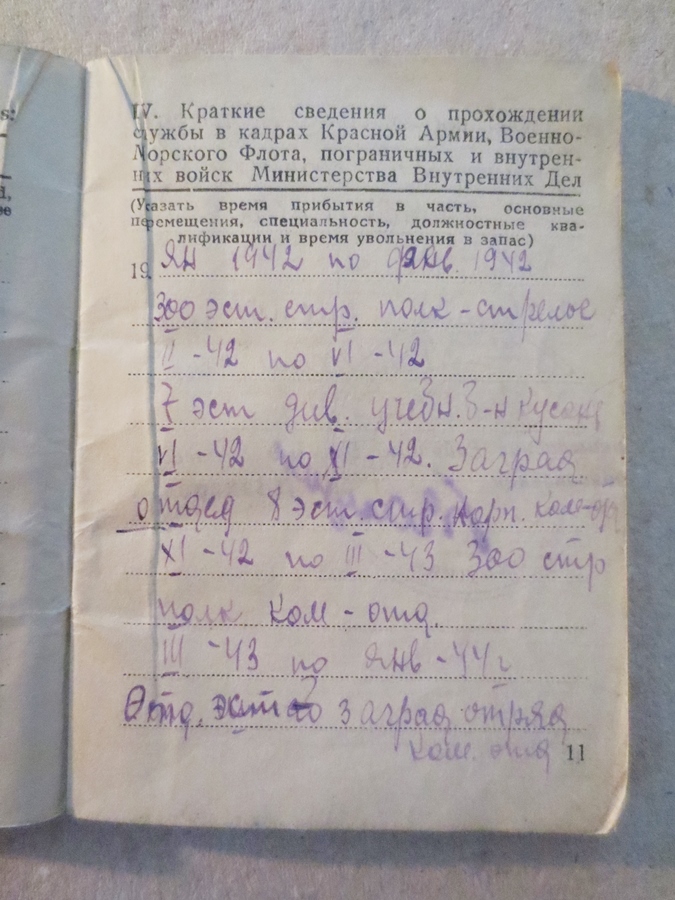 IV. Краткие сведения о прохождении
службы в кадрах Красной Армии, Военно-
Морского Флота, пограничных и внутрен-
них войск Министерства Внутренних Дел
(Указать время прибытия в часть, основные
перемещения, специальность, должностные ква-
лификации и время увольнения в запас)
19 ЯН 1942 по 1942
300 эст. стр. полк - стрелок
II - 42 по VI - 42
7 эст див. учебн. б-н курсант
VI - 42 по XI - 42. Заград
отдел 8 эст. стр. корп. ком-отд
XI - 42 по III - 43 300 стр
полк ком - отд.
III - 43 по янв - 44 г
Отд. заград отряд
ком. отд
11